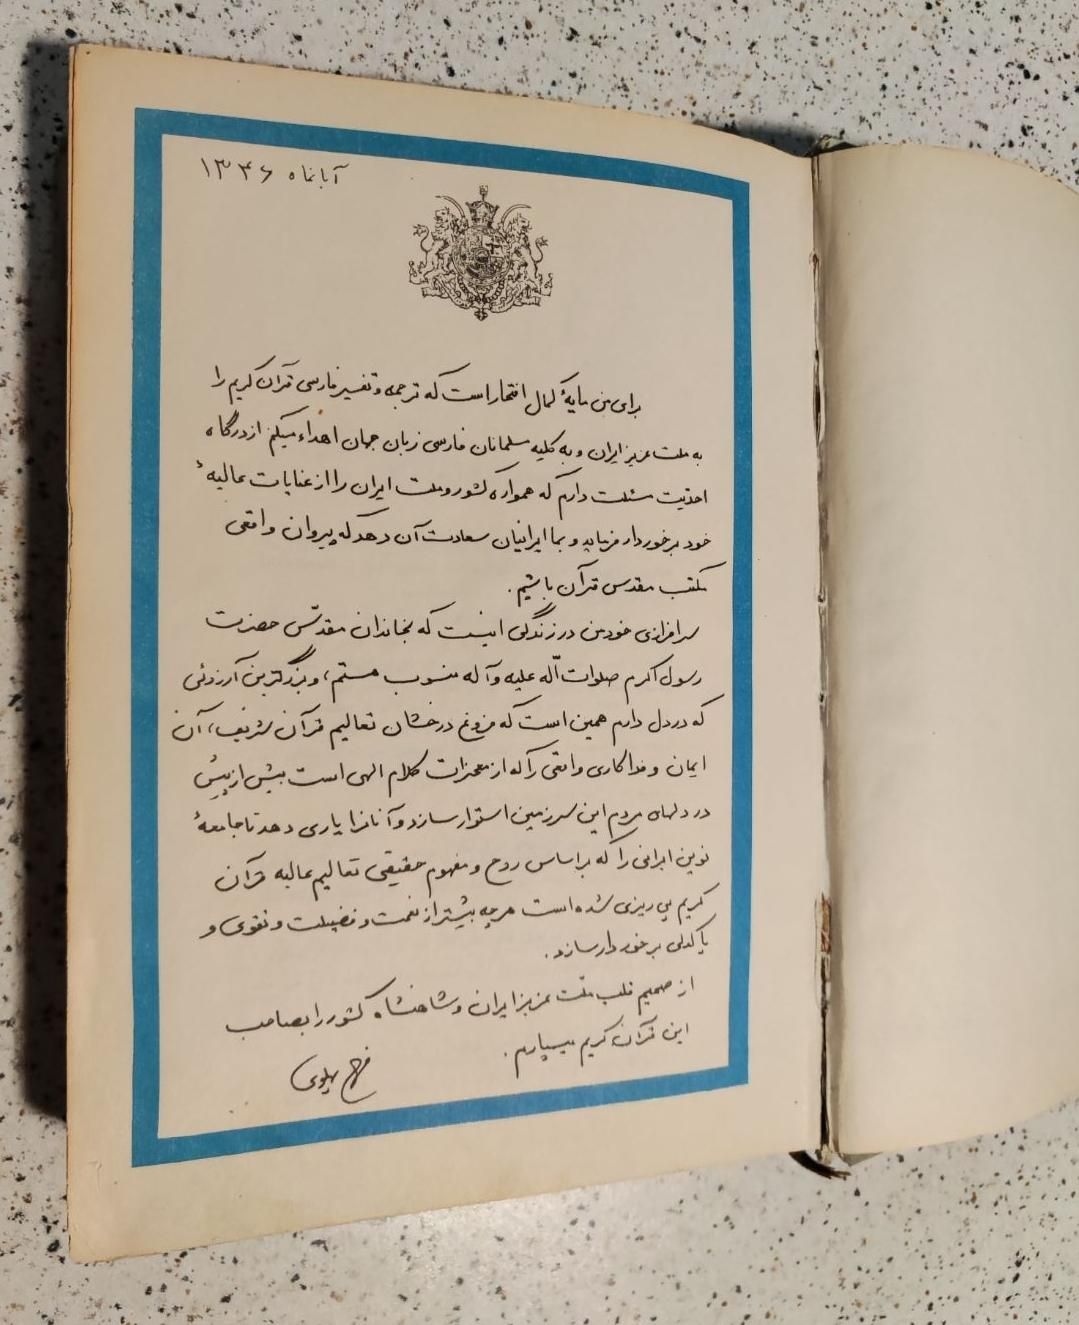 آبانماه ۱۳۴۶
برای من مایهٔ کمال افتخار است که ترجمه و تفسیر فارسی قرآن کریم را
به ملت عزیز ایران و به کلیه مسلمانان فارسی زبان جهان اهداء میکنم از درگاه
احدیت مسئلت دارم که همواره کشور و ملت ایران را از عنایات عالیهٔ
خود برخوردار فرماید و بما ایرانیان سعادت آن دهد که پیروان واقعی
مکتب مقدس قرآن باشیم.
سرافرازی خود من در زندگی اینست که بخاندان مقدّس حضرت
رسول اکرم صلوات الله علیه و آله منسوب هستم، و بزرگترین آرزوئی
که در دل دارم همین است که فروغ درخشان تعالیم قرآن شریف، آن
ایمان و فداکاری واقعی را که از معجزات کلام الهی است بیش از پیش
در دلهای مردم این سرزمین استوار سازد و آنانرا یاری دهد تا جامعهٔ
نوین ایرانی را که بر اساس روح و مفهوم حقیقی تعالیم عالیه قرآن
کریم پی ریزی شده است هر چه بیشتر از نعمت و فضیلت و تقوی و
پاکدلی برخوردار سازد.
از صمیم قلب ملّت عزیز ایران و شاهنشاه کشور را بصاحب
این قرآن کریم میسپارم.
فرح پهلوی